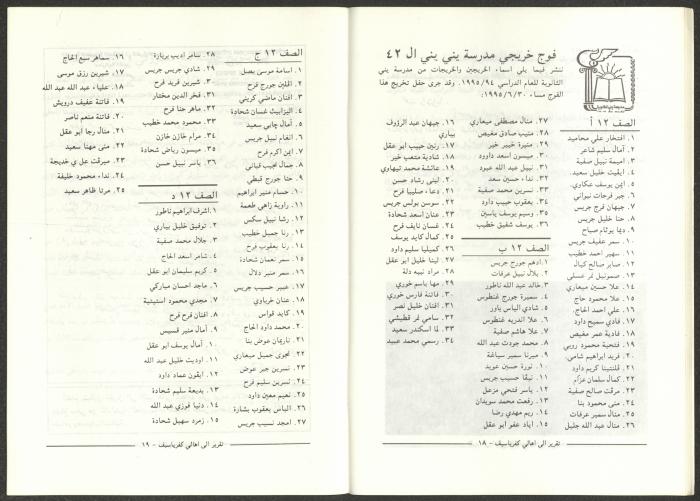 فوج خريجي مدرسة يني يني ال ٤٢
ننشر فيما يلي اسماء الخريجين والخريجات من مدرسة يني
الثانوية للعام الدراسي ١٩٩٥/٩٤. وقد جرى حفل تخريج هذا
الفوج مساء ١٩٩٥/٦/٣٠:
الصف ١٢ أ
١. افتخار علي محاميد
٢. آمال سليم شاعر
٣. اميمة نبيل صفية
٤. ايفيت خليل سعيد
٥. ايمن يوسف عكاوي
٦. جبر فرحات نبواني
٧. جيهان فرج جريس
٨. حنا خليل جريس
٩. ديما بولس صباح
١٠. سمر عفيف جريس
١١. سهير احمد خطيب
١٢. صابر صالح كيال
١٣. صموئيل نمر عسلي
١٤. علا حسين ميعاري
١٥. علا محمود حاج
١٦. علي احمد الحاج
١٧. فادي سميح داود
١٨. فادية عمر مغيص
١٩. فتحية محمود روبي
٢٠. فريد ابراهيم شامي
٢١. فلنتينا كريم داود
٢٢. كمال سلمان عزام
٢٣. مرقت صالح صفية
٢٤. منى محمود بنا
٢٥. منال سمير عرفات
٢٦. منال عبد الله جليل
٢٧. منال مصطفى ميعاري
٢٨. منيب صادق مغيص
٢٩. منيرة خبير خير
٣٠. ميسون أسعد داوود
٣١. نبيل عبد الله عبود
٣٢. نداء حسين سعد
٣٣. نسرين محمد صفية
٣٤. يعقوب حبيب داود
٣٥. وسيم يوسف ياسين
٣٦. يوسف شفيق خطيب
الصف ١٢ ب
١. ادهم جورج جريس
٢. بلال نبيل عرفات
٣. خالد عبد الله ناطور
٤. سميرة جورج غنطوس
٥. شادي الياس ياور
٦. علا اندريه غنطوس
٧. علا هاشم صفية
٨. محمد جودت عبد الله
٩. ميرنا سمير سباغة
١٠. نورة حسين عويد
١١. نيفا حسيب جريس
١٢. ياسر فتحي مزعل
١٣. رفعت محمد سويدان
١٤. ريم مهدي رضا
١٥. اياد عفو ابو عقل
١٦. جيهان عبد الرؤوف
بياري
١٧. رنين حبيب ابو عقل
١٨. شادية متعب خير
١٩. عائشة محمد تيهاوي
٢٠. ليني رشاد حسن
٢١. دعاء صليبا فرح
٢٢. سوسن بولس جريس
٢٣. عنان اسعد شحادة
٢٤. غسان نايف فرح
٢٥. كمال كايد يوسف
٢٦. كميليا سليم داود
٢٧. لينا خليل ابو عقل
٢٨. مراد نبيه دلة
٢٩. مها باسم خوري
٣٠. فاتنة فارس خوري
٣١. افنان خليل نصر
٣٢. سامي نمر قطيشي
٣٣. لما اسكندر سعيد
٣٤. رسمي محمد عبيد
تقرير الى اهالي كفرياسيف - ١٨
الصف ١٢ ج
١. اسامة موسى بصل
٢. اڤلين جورج فرح
٣. افنان ماضي كريني
٤. اليزابيث غسان شحادة
٥. آمال چابي سعيد
٦. انغام نبيل جريس
٧. ايمن اكرم فرح
٨. جمال نجيب قباني
٩. حنا جورج قبطي
١٠. حسام منير ابراهيم
١١. راوية زاهي طعمة
١٢. رشا نبيل سكس
١٣. رنا جميل خطيب
١٤. رنا يعقوب فرح
١٥. سمر نعمان شحادة
١٦. سمر منير دلال
١٧. عبير حسيب جريس
١٨. عنان خرباوي
١٩. كايد قواس
٢٠. محمد داود الحاج
٢١. ناريمان عوض بنا
٢٢. نجوى جميل ميعاري
٢٣. نسرين جبر عوض
٢٤. نسرين سليم فرح
٢٥. نعيم معين داود
٢٦. الياس يعقوب بشارة
٢٧. امجد نسيب جريس
٢٨. سامر اديب بربارة
٢٩. شادي جريس جريس
٣٠. شيرين فريد فرح
٣١. فخر الدين مختار
٣٢. ماهر حنا فرح
٣٣. محمود محمد خطيب
٣٤. مرام خازن خازن
٣٥. ميسون رياض شحادة
٣٦. ياسر نبيل حسن
الصف ١٢ د
١. اشرف ابراهيم ناطور
٢. توفيق خليل بياري
٣. جلال محمد صفية
٤. شامر اسعد الحاج
٥. كريم سليمان ابو عقل
٦. ماجد احسان مباركي
٧. مجدي محمود استيتية
٨. افنان فرح فرح
٩. آمال منير قسيس
١٠. آمال يوسف ابو عقل
١١. اوديت خليل عبد الله
١٢. ايفون عماد داود
١٣. بديعة سليم شحادة
١٤. دنيا فوزي عبد الله
١٥. زمرد سهيل شحادة
١٦. سماهر سبع الحاج
١٧. شيرين رزق موسى
١٨. علياء عبد الله عبد الله
١٩. فاتنة عفيف درويش
٢٠. فاتنة منعم ناصر
٢١. منال رجا ابو عقل
٢٢. منى مهنا سعيد
٢٣. ميرفت علي خديجة
٢٤. نداء محمود خليفة
٢٥. مرنا ظاهر سعيد
تقرير الى اهالي كفرياسيف - ١٩